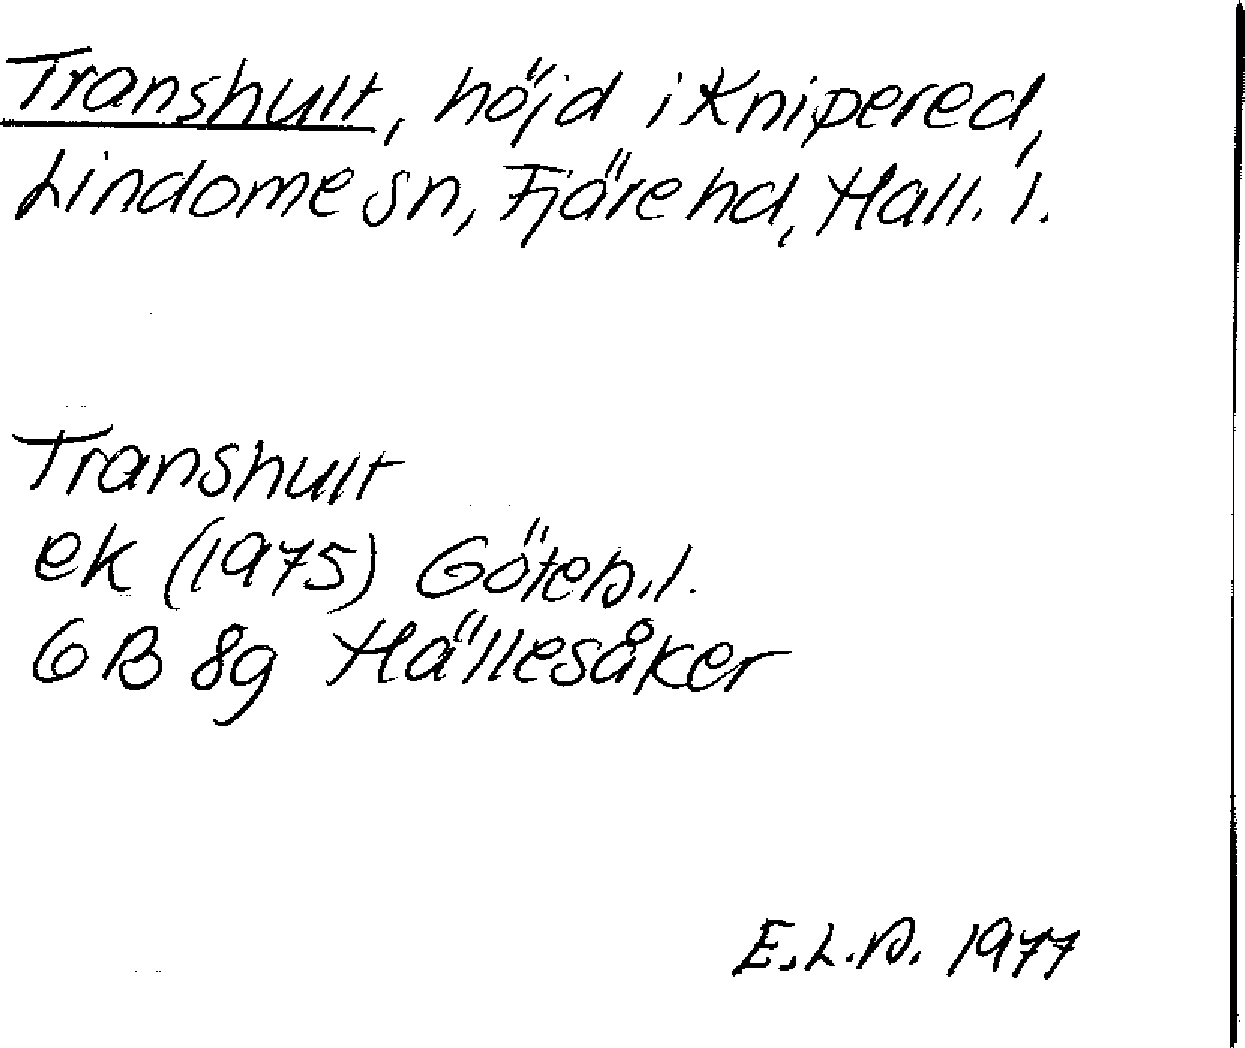 Transhult, höjd i Knipered,
Lindome sn, Fjäre hd, Hall. l.
Transhult
ek (1975) Göteb. l.
6B 8g Hällesåker
E.L.B. 1977